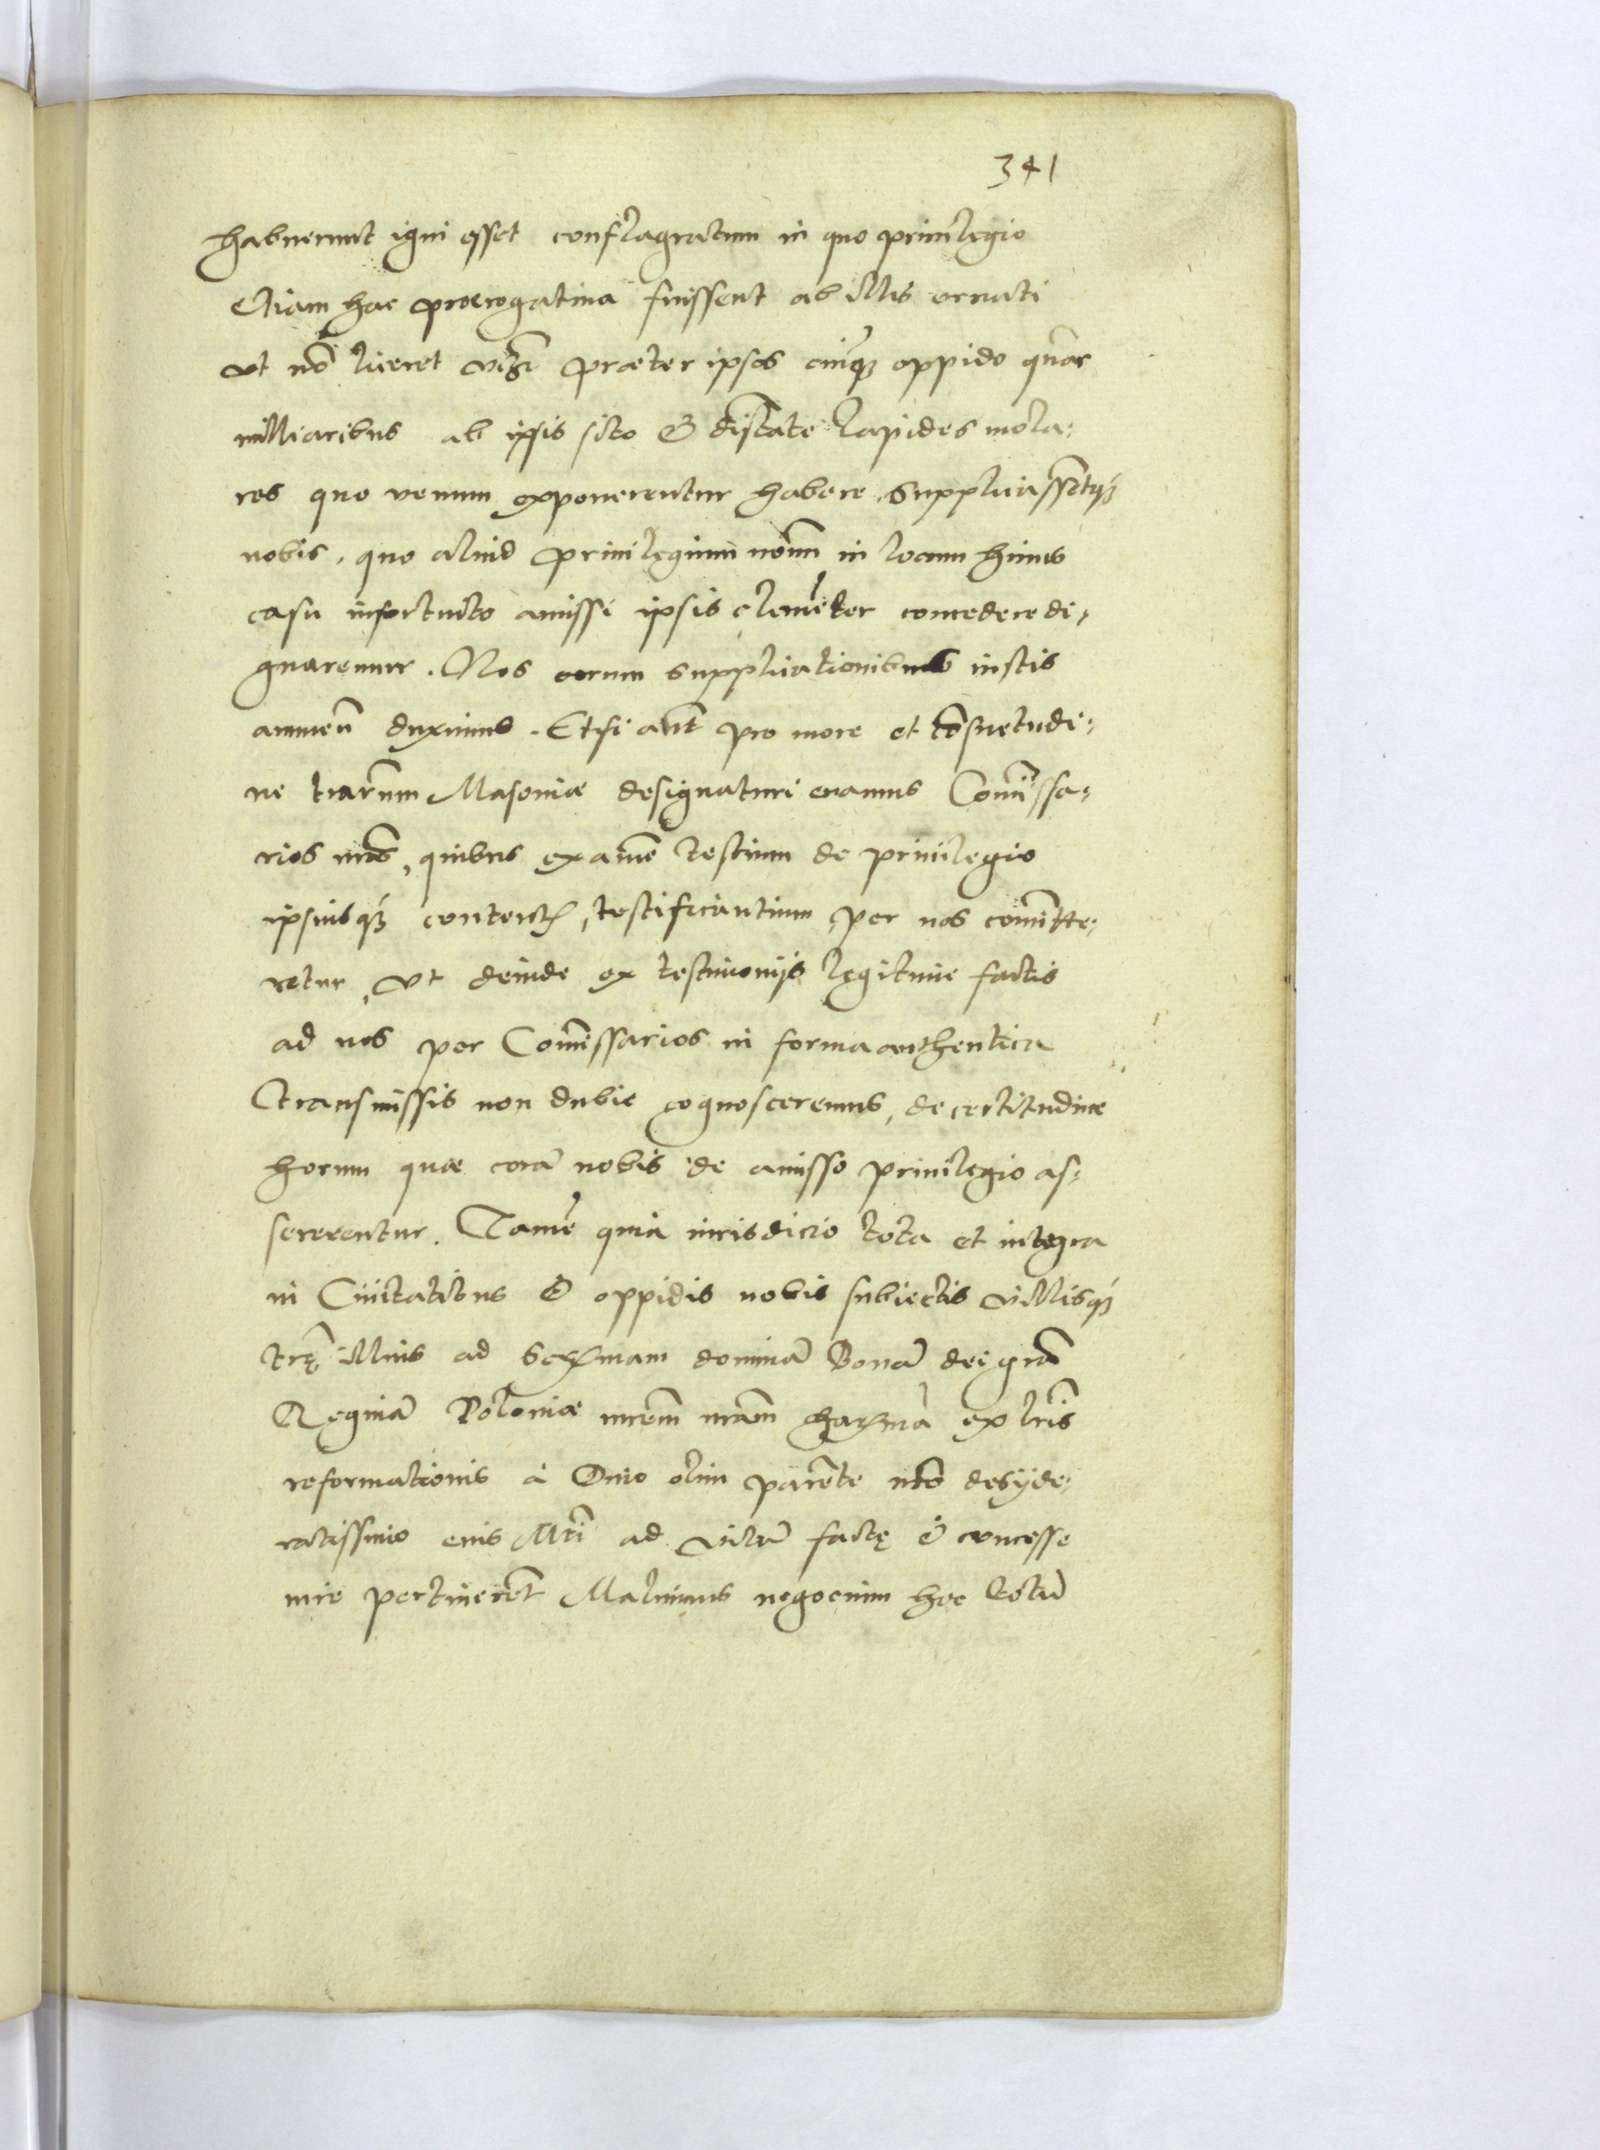 341
habuerunt igni esset conflagratum in quo priuilegio
Etiam hac praerogatiua fuissent ab illis ornati
vt nõ liceret praeter ipsos cuiq3 oppido
milliaribus ab ipsis sito & distãte lapides mola:
res quo venum exponerentur habere, Supplicassentq3
nobis, quo aliud priuilegium nouũ in locum huius
casu infortuito amissi ipsis clemẽter concedere di,
gnaremur. Nos eorum supplicationibus iustis
annuen̄ duximus. Etsi aũt pro more et cõsuetudi:
ne trarum Masoviae designaturi eramus Comissa,
rios nr̃os, quibus examẽ testium de priuilegio
ipsiusq3 testificantium per nos comitte:
retur, vt deinde ex testimonijs legitime factis
ad nos per Comissarios in forma authentica
transmissis non dubie cognosceremus, de certitudine
horum quae corã nobis de amisso priuilegio as,
sererentur. Tamẽ quia iurisdicio tota et integra
in Ciuitatibus & oppidis nobis subiectis villisq3
trę illius ad Serm̃am dominã Bonã dei grã
Reginã Poloniae mr̃em nr̃am charm̃ã ex lr̃is
reformationis à Diuo olim parẽte nr̃o desyde:
ratissimo eius Mti ad vitã factę & concesse
iure pertinerẽt Maluimus negocium hoc totũ